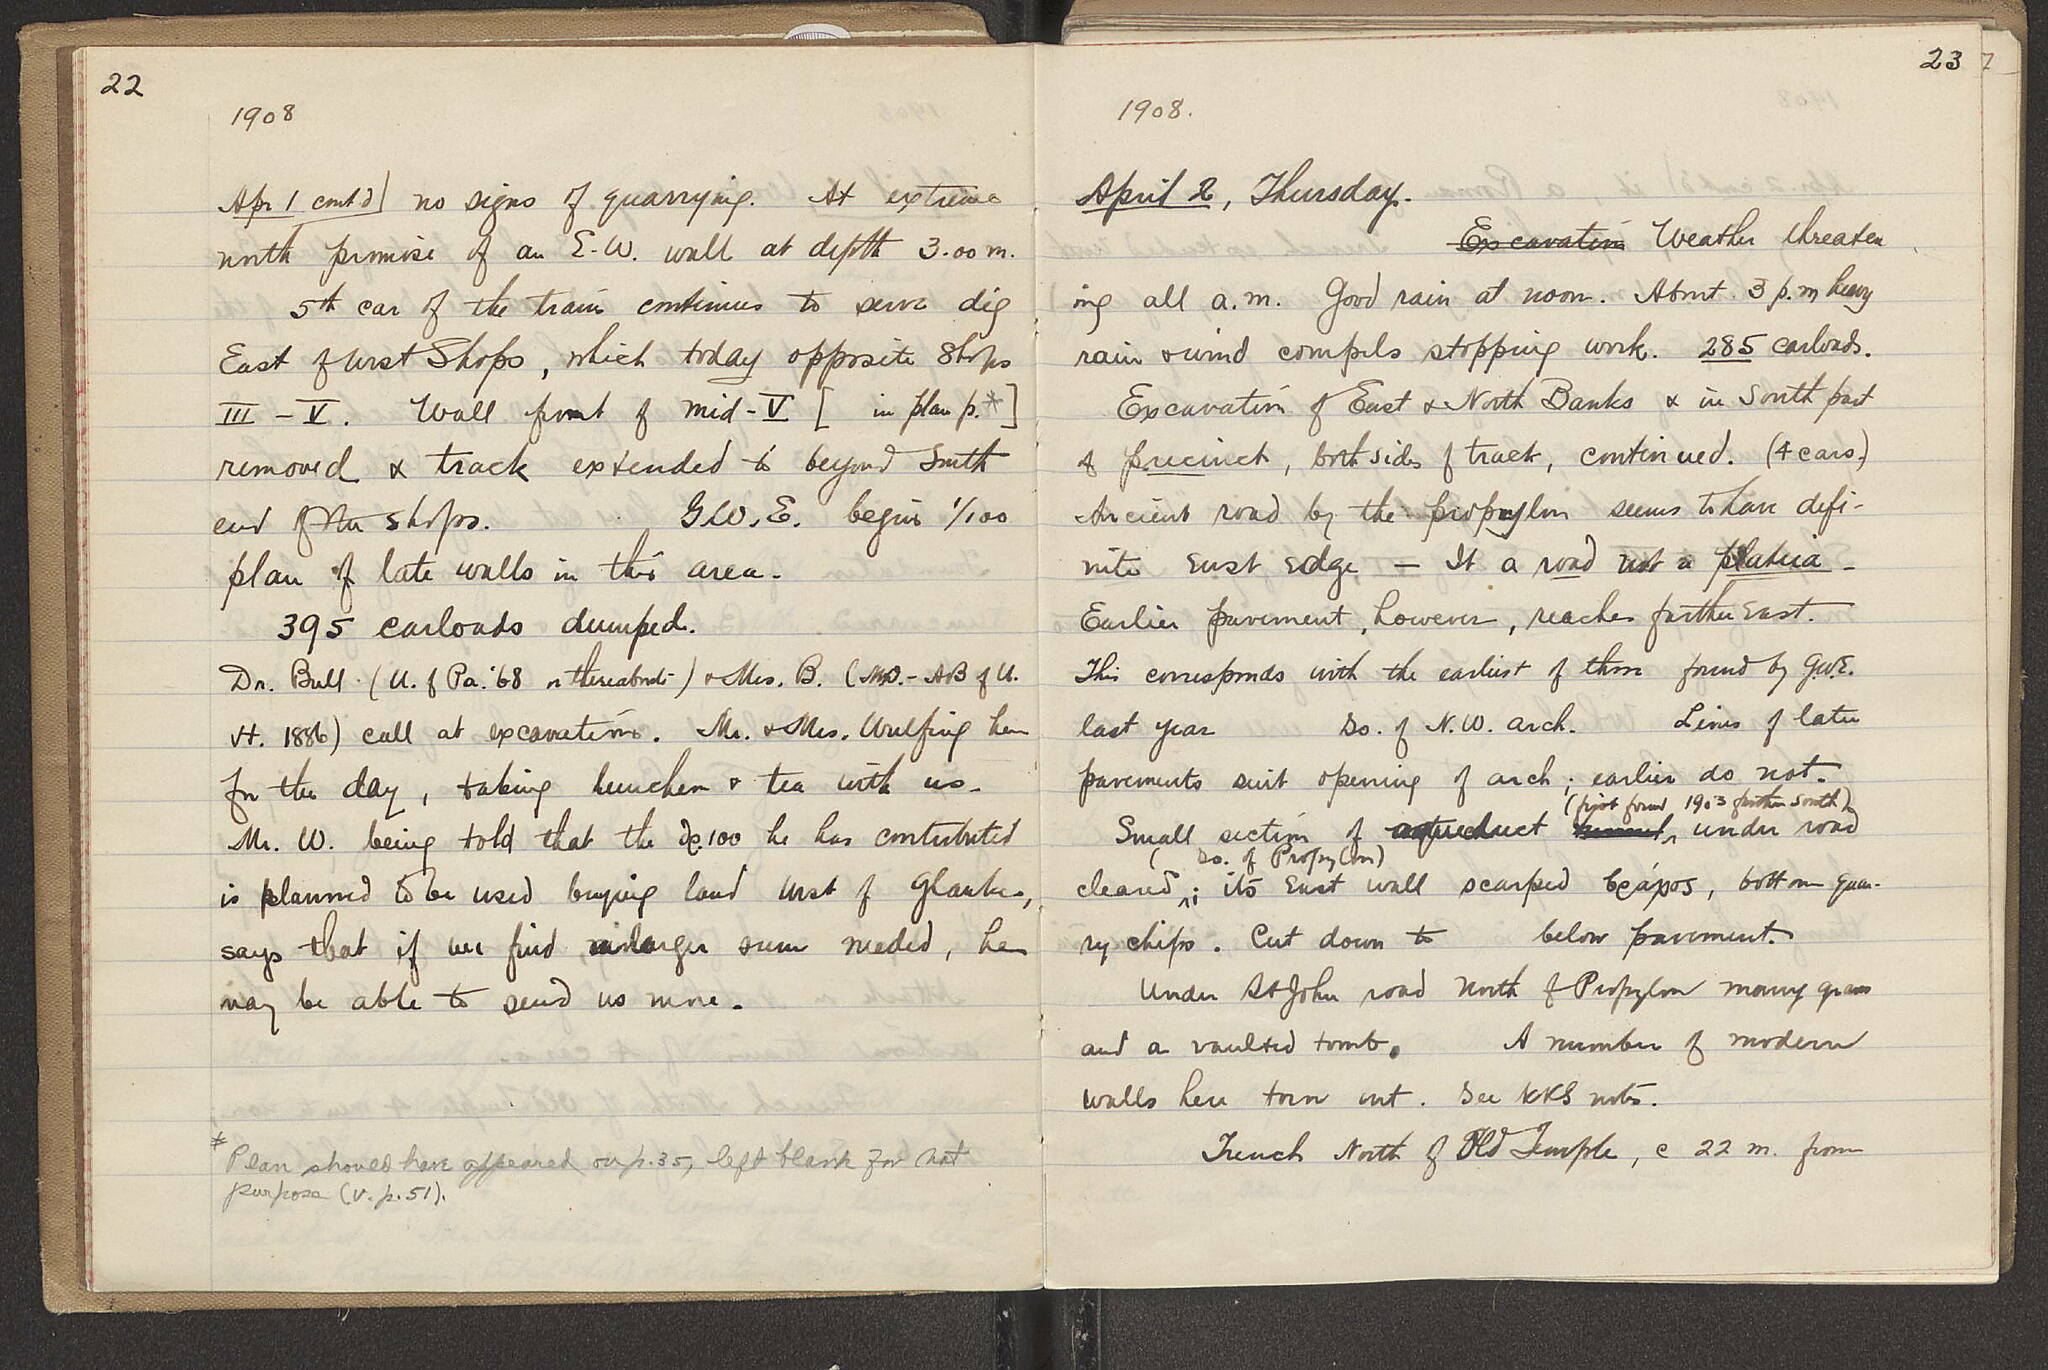 22
1908
Apr 1 cont'd) no signs of quarrying. At extreme
north promise of an E-W. wall at depth 3.00 m.
5th car of the train continues to serve dig
East of West Shops, which today opposite Shops
III - V. Wall front of mid-V [ in plan p.*]
removed & track extended to beyond South
end of the shops. G.W.E. begins 1/100
plan of late walls in this area.
395 carloads dumped.
Dr. Bull (U. of Pa. '68 or thereabouts) & Mrs. B. (M.D. - AB of U.
1886) call at excavations. Mr. & Mrs. Wulfing here
for the day, taking luncheon & tea with us.
Mr. W. being told that the 100 he has contributed
is planned to be used buying land west of Glauke,
says that if we find larger sum needed, he
may be able to send us more.
* Plan should have appeared on p. 35, left blank for that
purpose (v. p. 51).
23
7
1908.
April 2, Thursday.
Excavation Weather threaten
ing all a.m. Good rain at noon. About 3 p.m heavy
rain & wind compels stopping work. 285 carloads.
Excavation of East & North Banks & in South part
of precinct, both sides of track, continued. (4 cars.)
Ancient road by the propylon seems to have defi-
nite east edge — It a road not a plateia -
Earlier pavement, however, reaches farther east.
This corresponds with the earliest of those found by G.W.E.
last year So. of N.W. arch. Lines of later
pavements suit opening of arch; earlier do not.
(first found 1903 further South)
Small section of aqueduct under road
(So. of Propylon)
cleared; its east wall scarped bottom quar-
ry chips. Cut down to below pavement.
Under St John road North of Propylon many graves
and a vaulted tomb. A number of modern
walls here torn out. See KKS notes.
Trench North of Old Temple, c 22 m. from